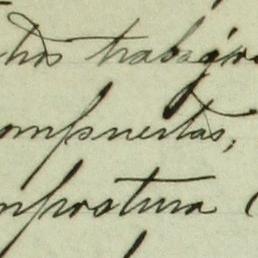 chos trabajos
compuertas;
mpostura (